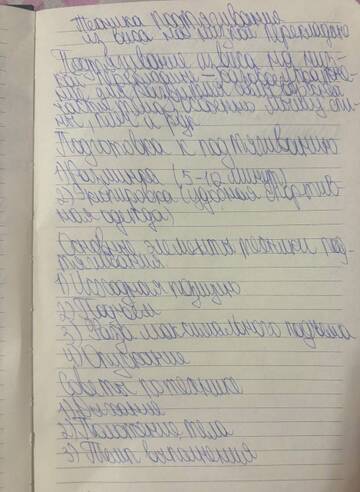 Техника подтягивание
из виса на низкой перекладине
Подтягивание из виса на низ-
кой перекладине – базовое упражне-
ние для развития силы верхней
части тела, особенно мышц спи-
ны, плеч и рук
Подготовка к подтягиванию
1) Разминка (5-10 минут)
2) Экипировка (удобная спортив-
ная одежда)
Основные элементы техники под-
тягивания
1) Исходная позиция
2) Подъём
3) Фаза максимального подъёма
4) Опускание
Советы по технике
1) Дыхание
2) Положение тела
3) Темп выполнения